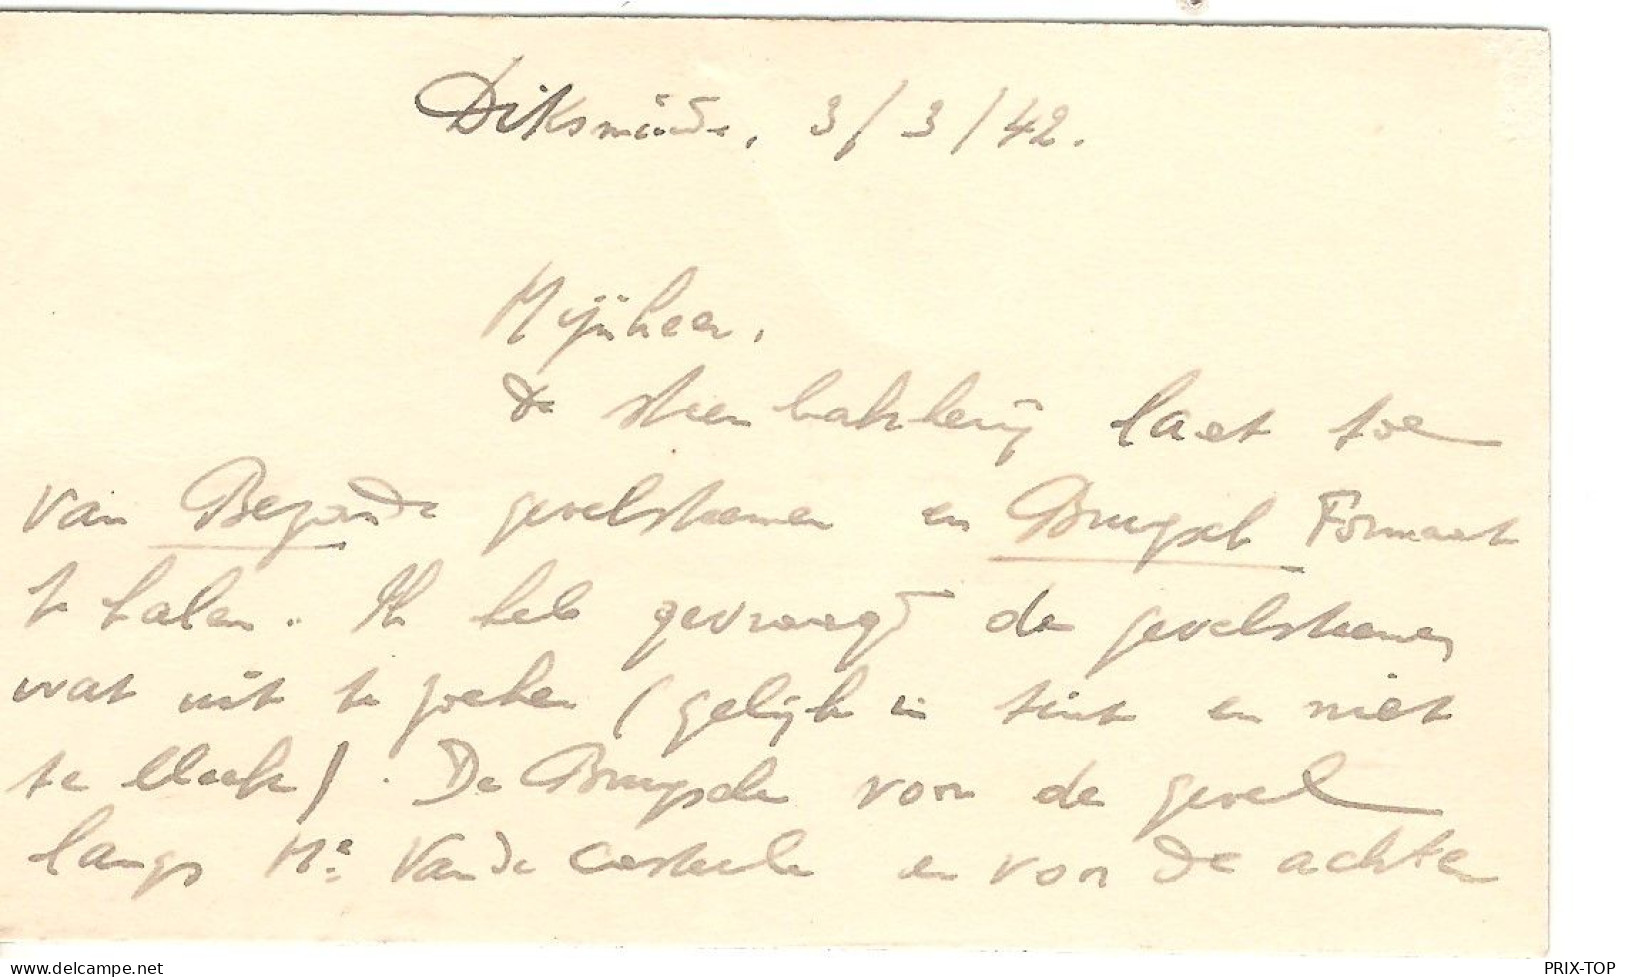 Diksmüde, 3/3/42.
Mijnheer,
de steenbakkerij laat toe
van gevelsteenen en Brugsch Formaat
te halen. Ik heb gevraagd de gevelsteenen
wat uit te zoeken (gelijk in tint en niet
te bleek). De Brugsche voor de gevel
langs Mr Van de Casteele en voor de achter
PRIX-TOP